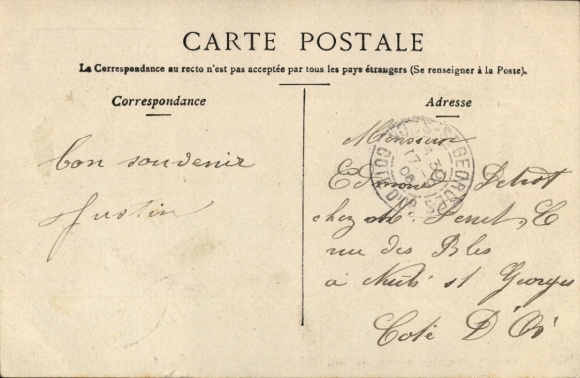 CARTE POSTALE
La Correspondance au recto n'est pas acceptée par tous les pays étrangers (Se renseigner à la Poste).
Correspondance
bon souvenir
Justin
Adresse
Monsieur
Edmond
chez Mr Perret, E
rue des
à Nuits st Georges
Cote D'Or
GEORGES
COTE D'OR